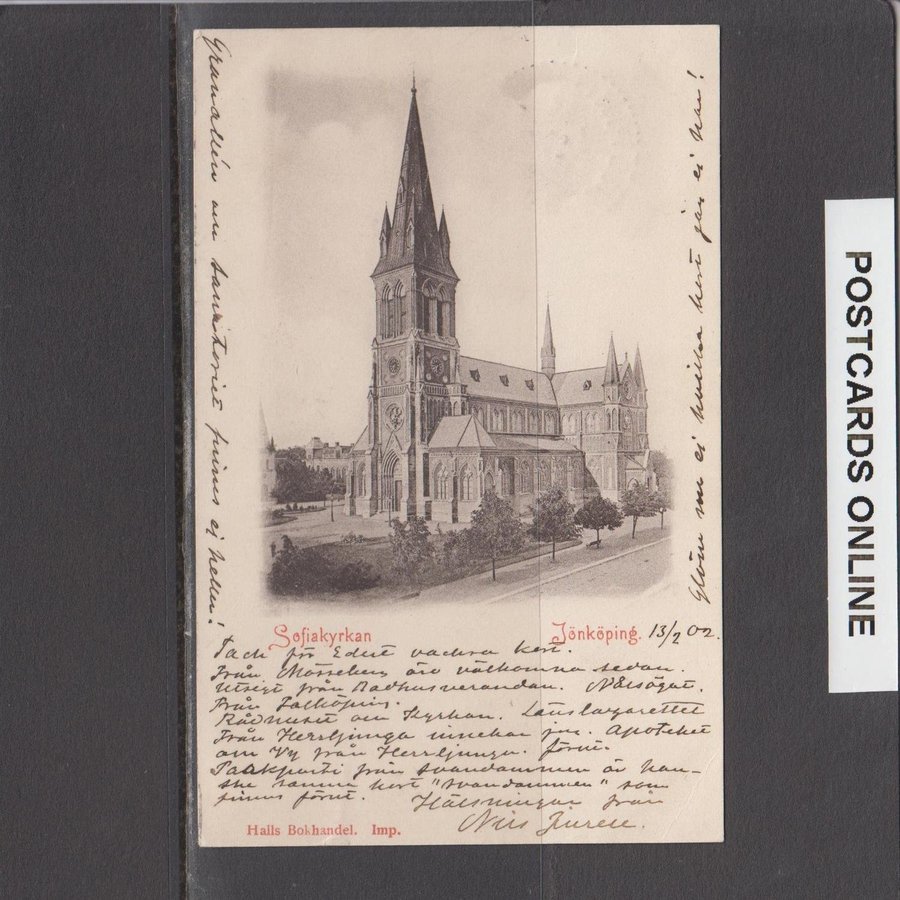 Sofiakyrkan Jönköping. 13/2 02.
Tack för Edert vackra kort.
Från Mösseberg äro välkomna sedan.
Utsigt från Rådhusverandan.
Från Falköping.
Rådhuset om Kyrkan. Länslasarettet
Från Herrljunga innehar jag. Apoteket
om Vy från Herrljunga. förut.
Parkparti från svandammen är kan-
ske samma kort "svandammen" som
finnes förut. Hälsningar från
Nils
Halls Bokhandel. Imp.
Granallén om sanatoriet finnes ej heller!
Glöm nu ej hvilka kort jag ej har!
POSTCARDS ONLINE